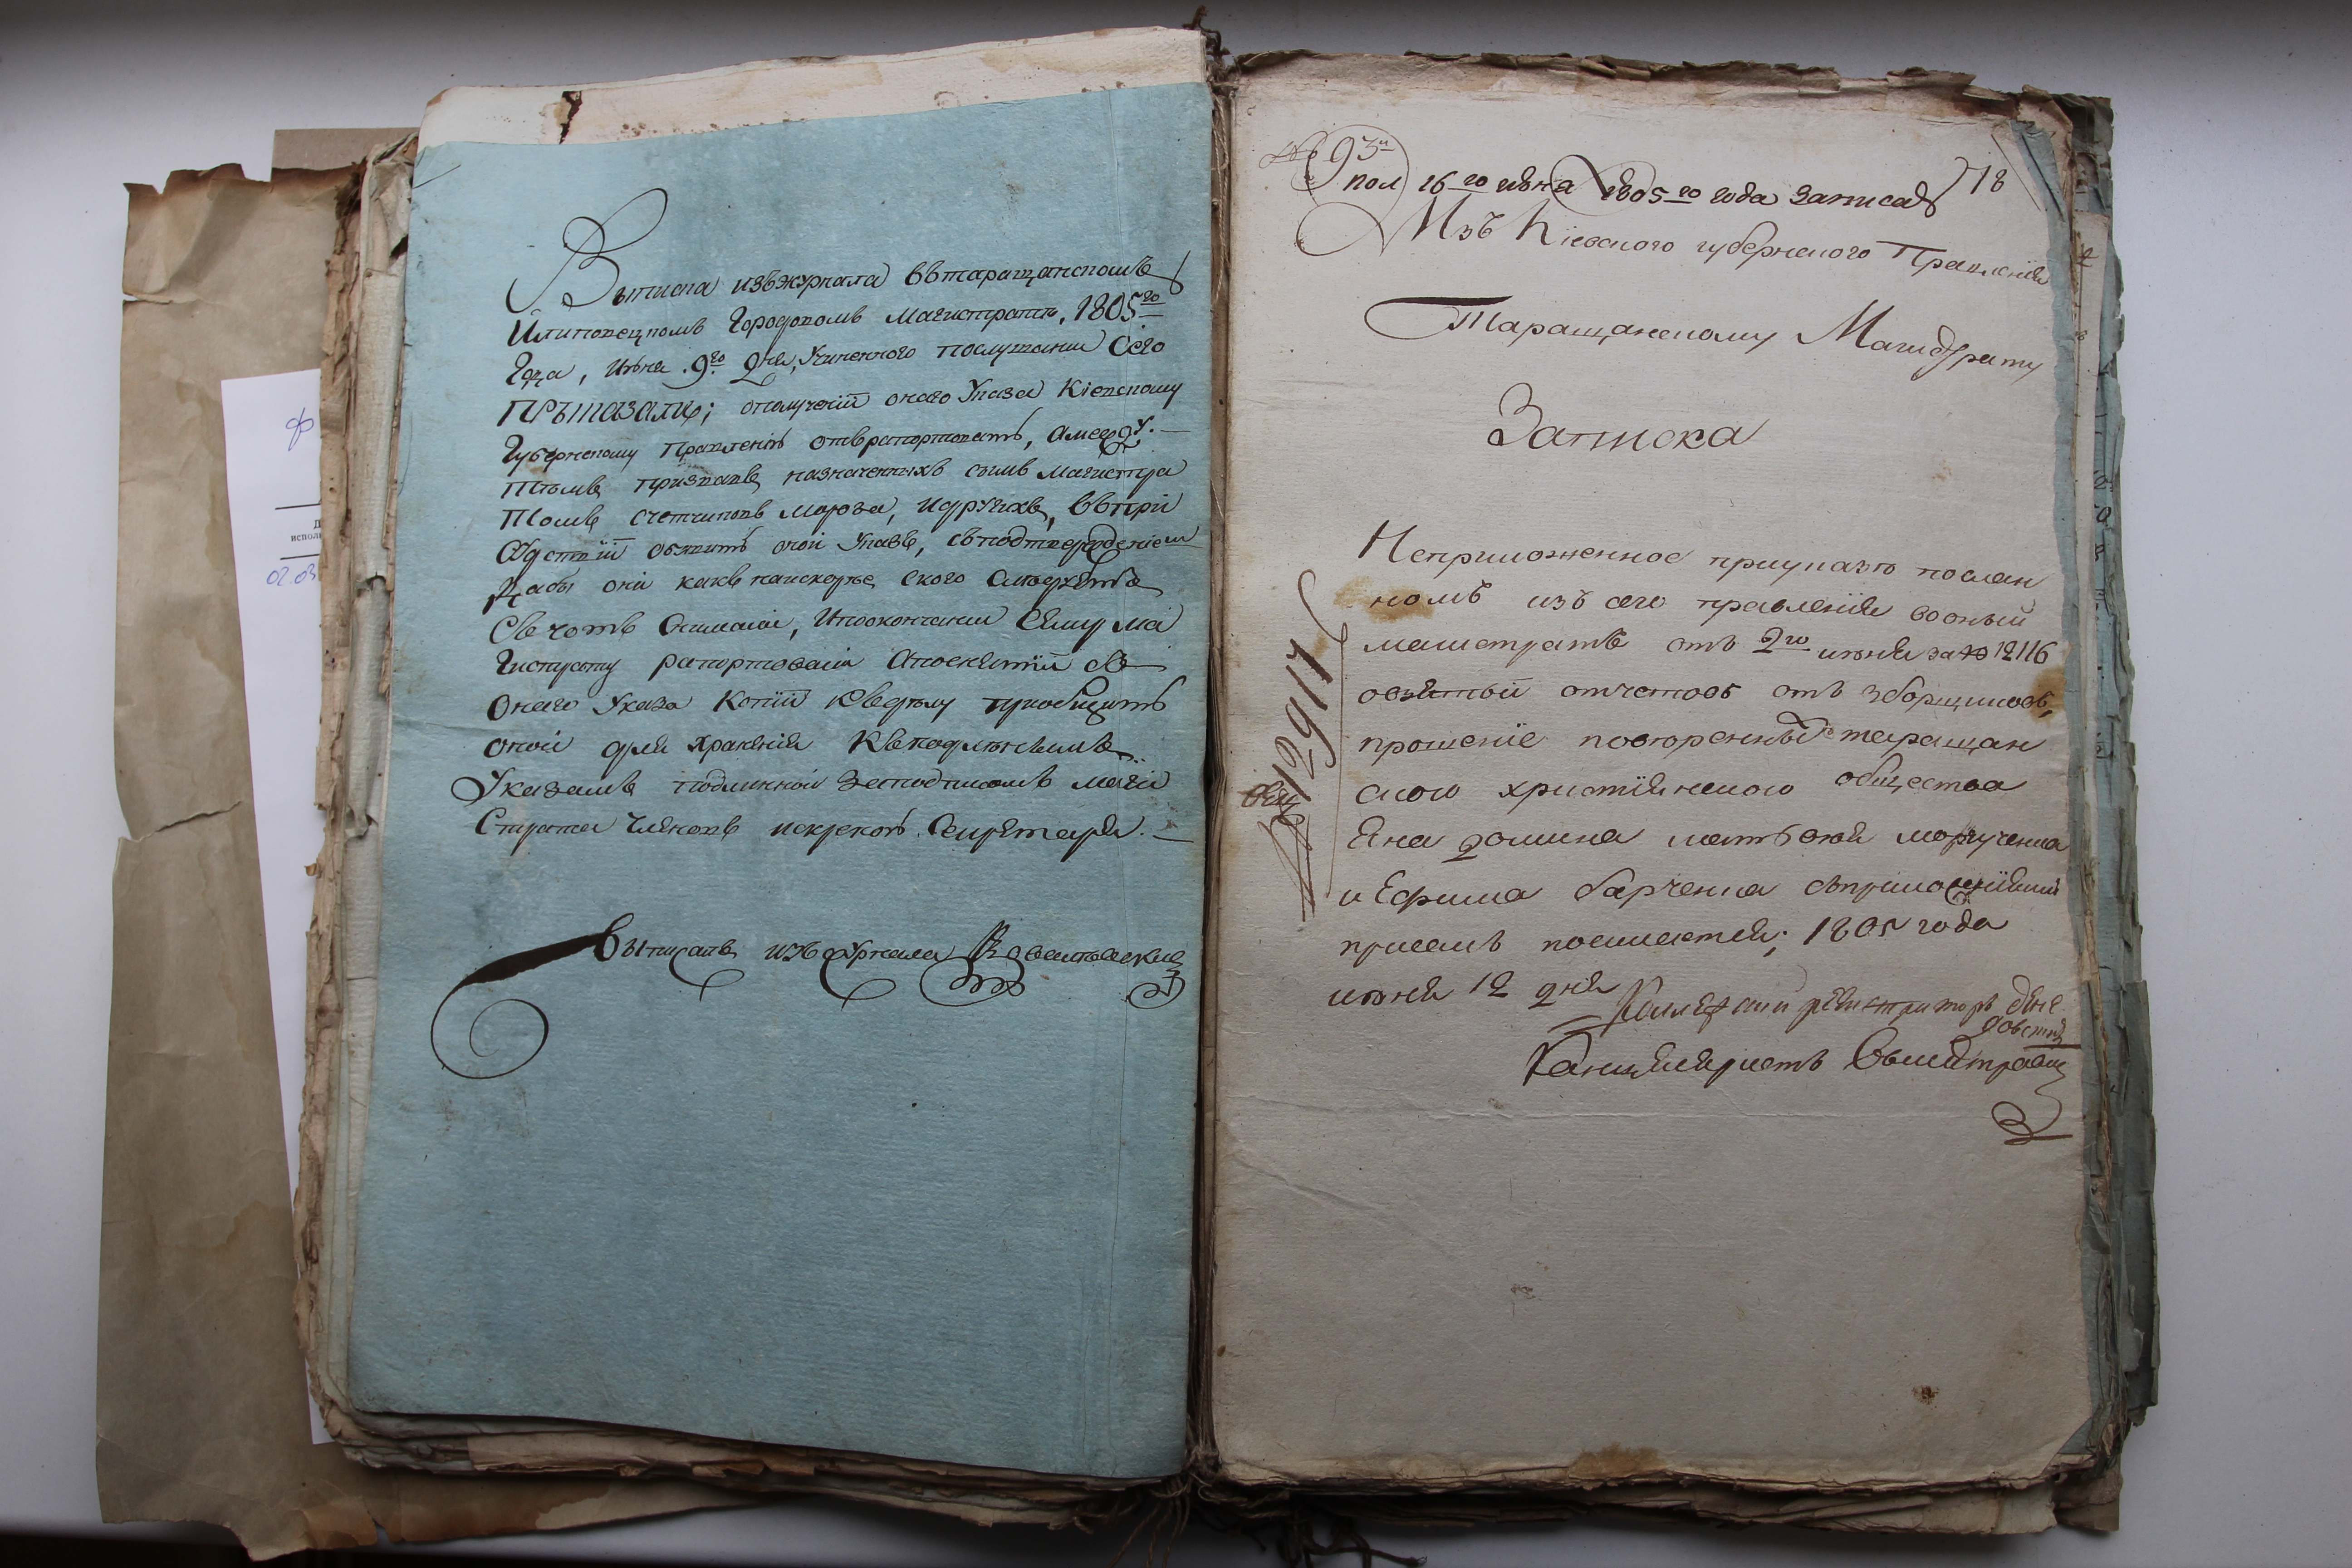 Выписка изъ журнала въ таращанскомъ
Илиповецкомъ Городовомъ Магистратѣ, 1805го
Года, Июня 9го Дня, Учиненного послушании Сего
Приказали; ополученіи онаго Указа Кіевскому
Губернскому Правленію отврапортовать, а между
тѣмъ призвавъ назначенныхъ симъ магистра
томъ счетчиковъ Мороза, идругихъ, въ при
судствіи обявить оной Указъ, съ подтвержденіем
дабы они какъ наискорѣе
Свечотъ, ипоокончании Сему Ма
гистрату рапортовали Апоснятіи съ
Онаго Указа Копіи къ дѣлу приобщить
оной для храненія къ подлѣннымъ
Указамъ подлинной заподписомъ маги
страта членовъ искрепою Секретаря.
Выписалъ изъ журнала
93
пол 16го июня 1805го года записат 18
Изъ Кіевского губернского Правленія
Таращанскому Магистрату
Записка
Неприложенное приуказѣ послан
номъ изъ сего правленія воный
магистратъ отъ 2го июня за № 12116
овзятьи отчетовъ отъ зборщиковъ,
прошеніе повѣренныхъ таращан
ского християнского общества
Яна Домина Матвѣя Марученка
и Ефима Барченка съприложеніями
присемъ посилается; 1805 года
июня 12 дня
№ 12917
Колежский регистраторъ
Канцеляристъ